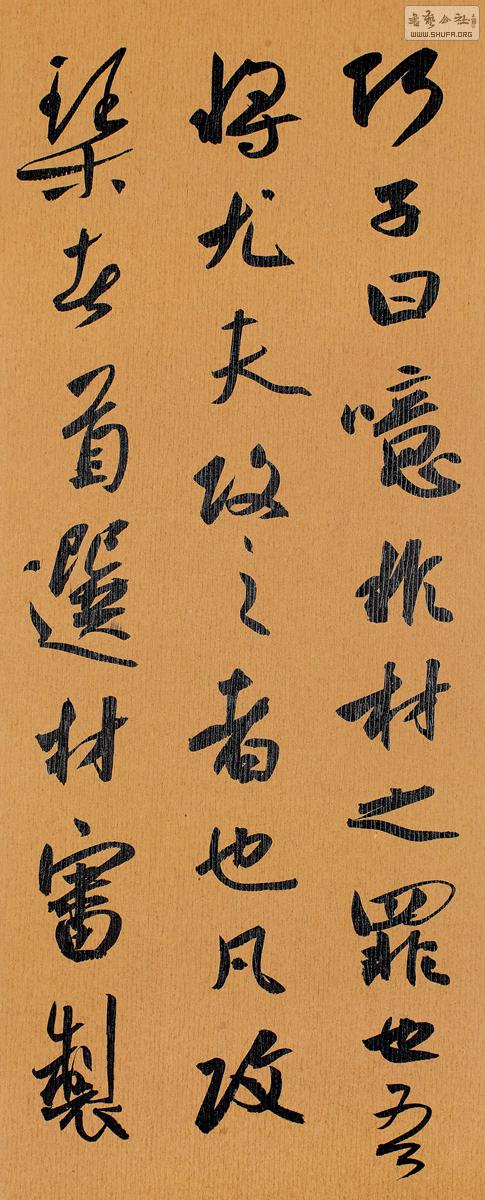 子曰噫非材之罪也吾
将尤夫攻之者也凡攻
琹者首選材審製
書藝公社
WWW.SHUFA.ORG